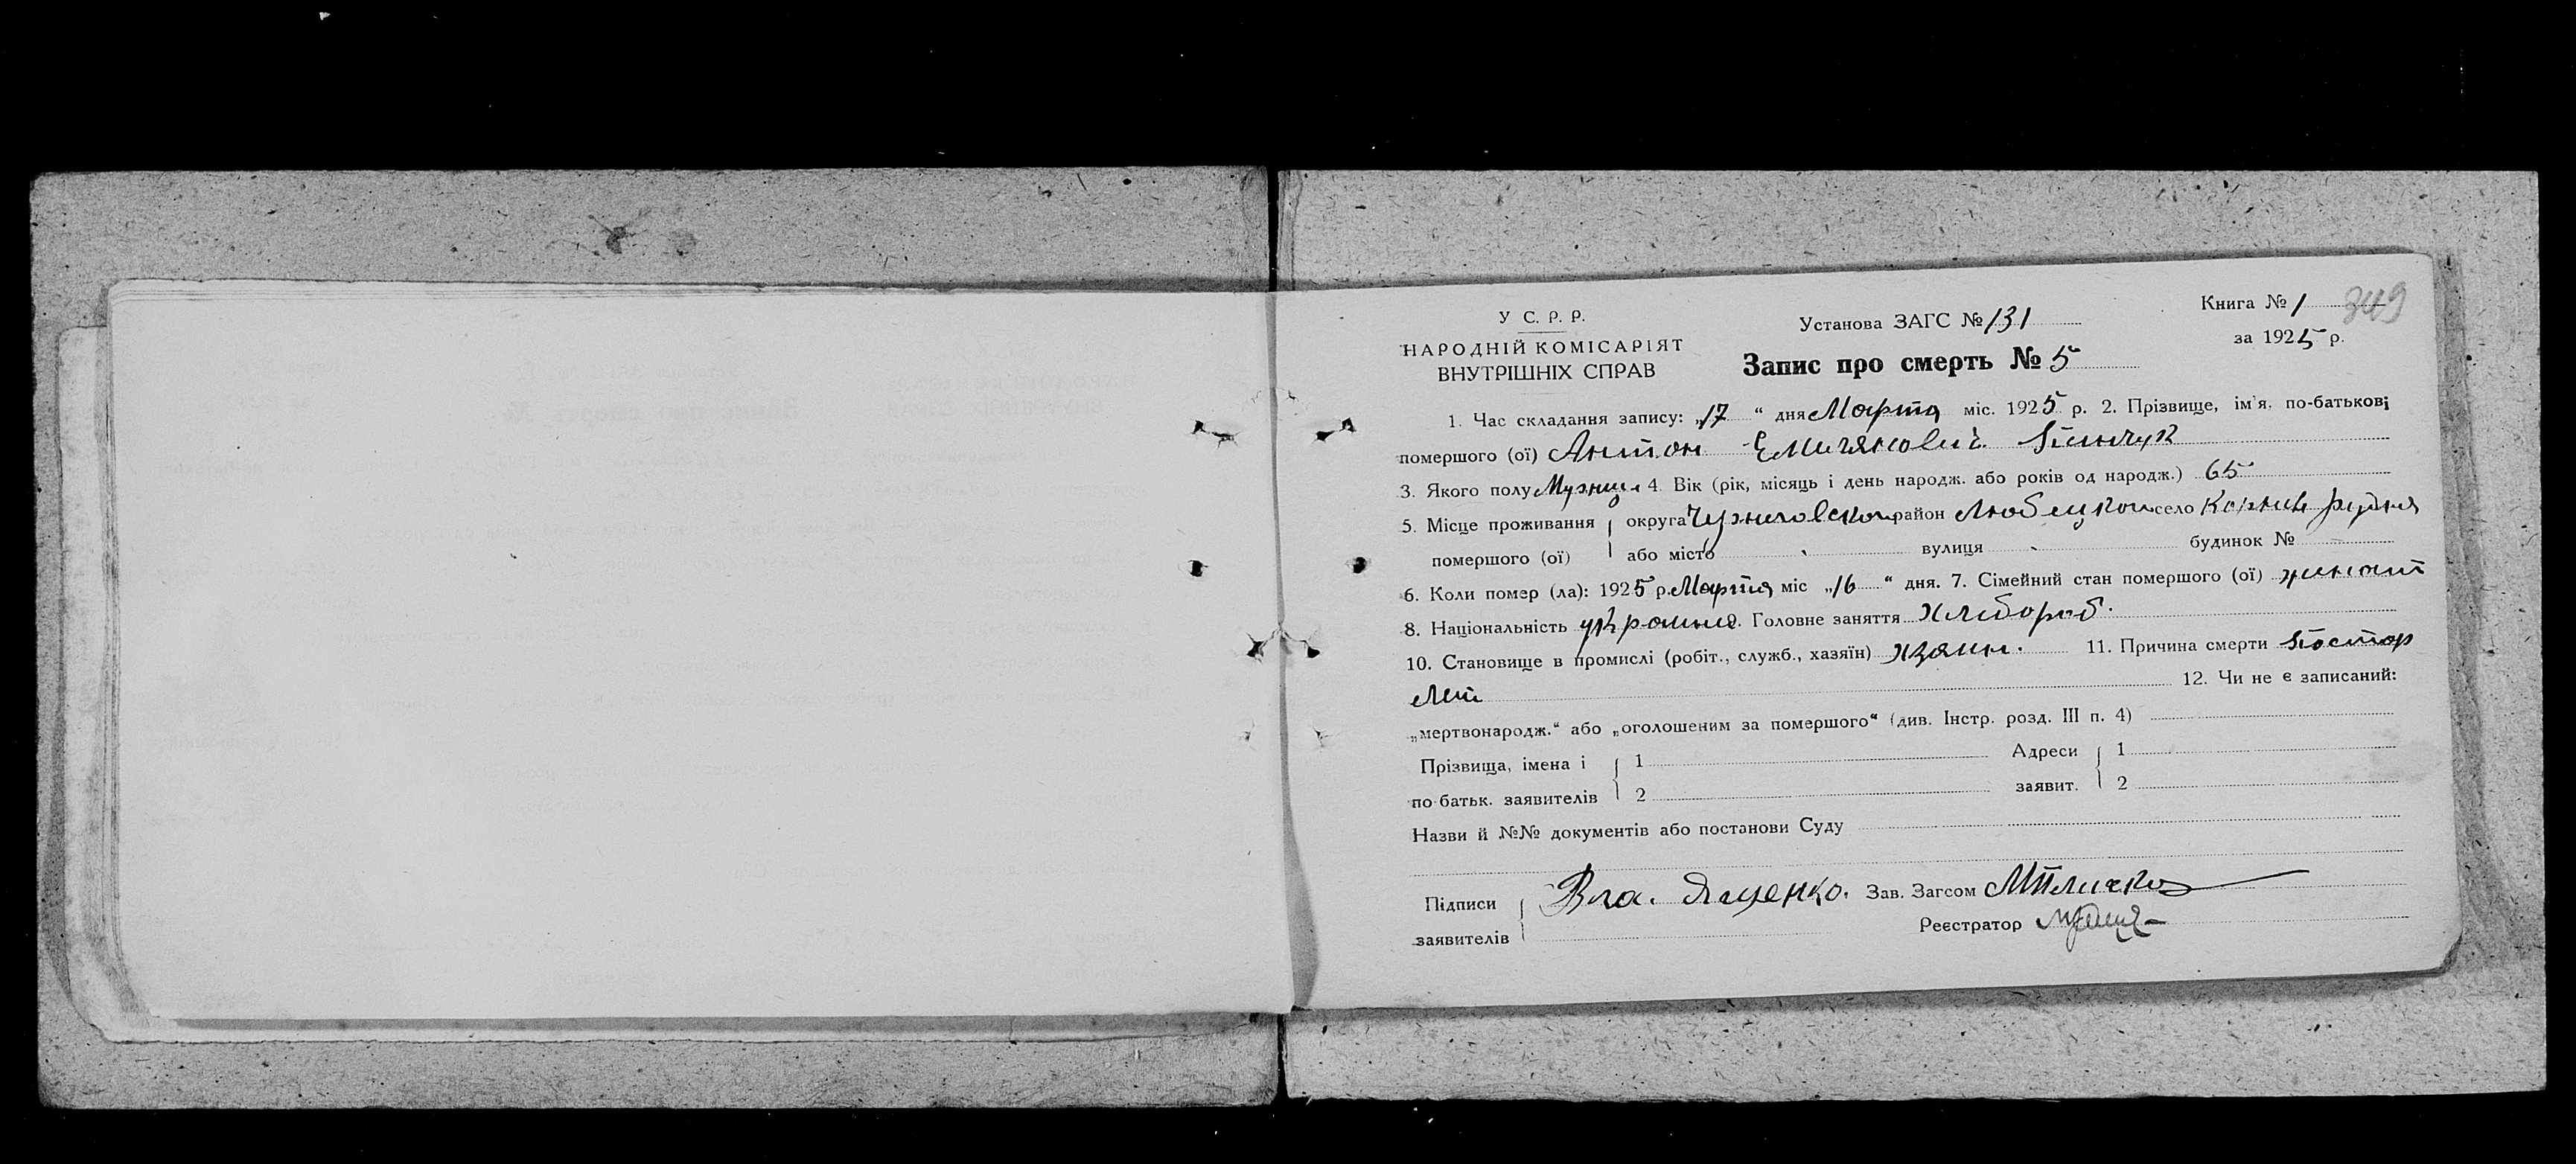 У С. Р. Р.
НАРОДНІЙ КОМІСАРІЯТ
ВНУТРІШНІХ СПРАВ
Установа ЗАГС № 131
Запис про смерть № 5
Книга № 1 349
за 1925 р.
1. Час складання запису: „17“ дня Марта міс. 1925 р. 2. Прізвище, ім'я, по-батькові
помершого (ої) Антон Емилянович
3. Якого полу 4. Вік (рік, місяць і день народж. або років од народж.) 65
5. Місце проживання округа район село
помершого (ої) або місто вулиця будинок №
6. Коли помер (ла): 1925 р. Марта міс „16“ дня. 7. Сімейний стан помершого (ої) жинат
8. Національність Головне заняття Хлібороб.
10. Становище в промислі (робіт., служб., хазяїн) 11. Причина смерти
лет 12. Чи не є записаний:
„мертвонародж.“ або „оголошеним за помершого“ (див. Інстр. розд. III п. 4)
Прізвища, імена і 1 Адреси 1
по батьк. заявителів 2 заявит. 2
Назви й №№ документів або постанови Суду
Підписи Вла. Ященко. Зав. Загсом
заявителів Реєстратор